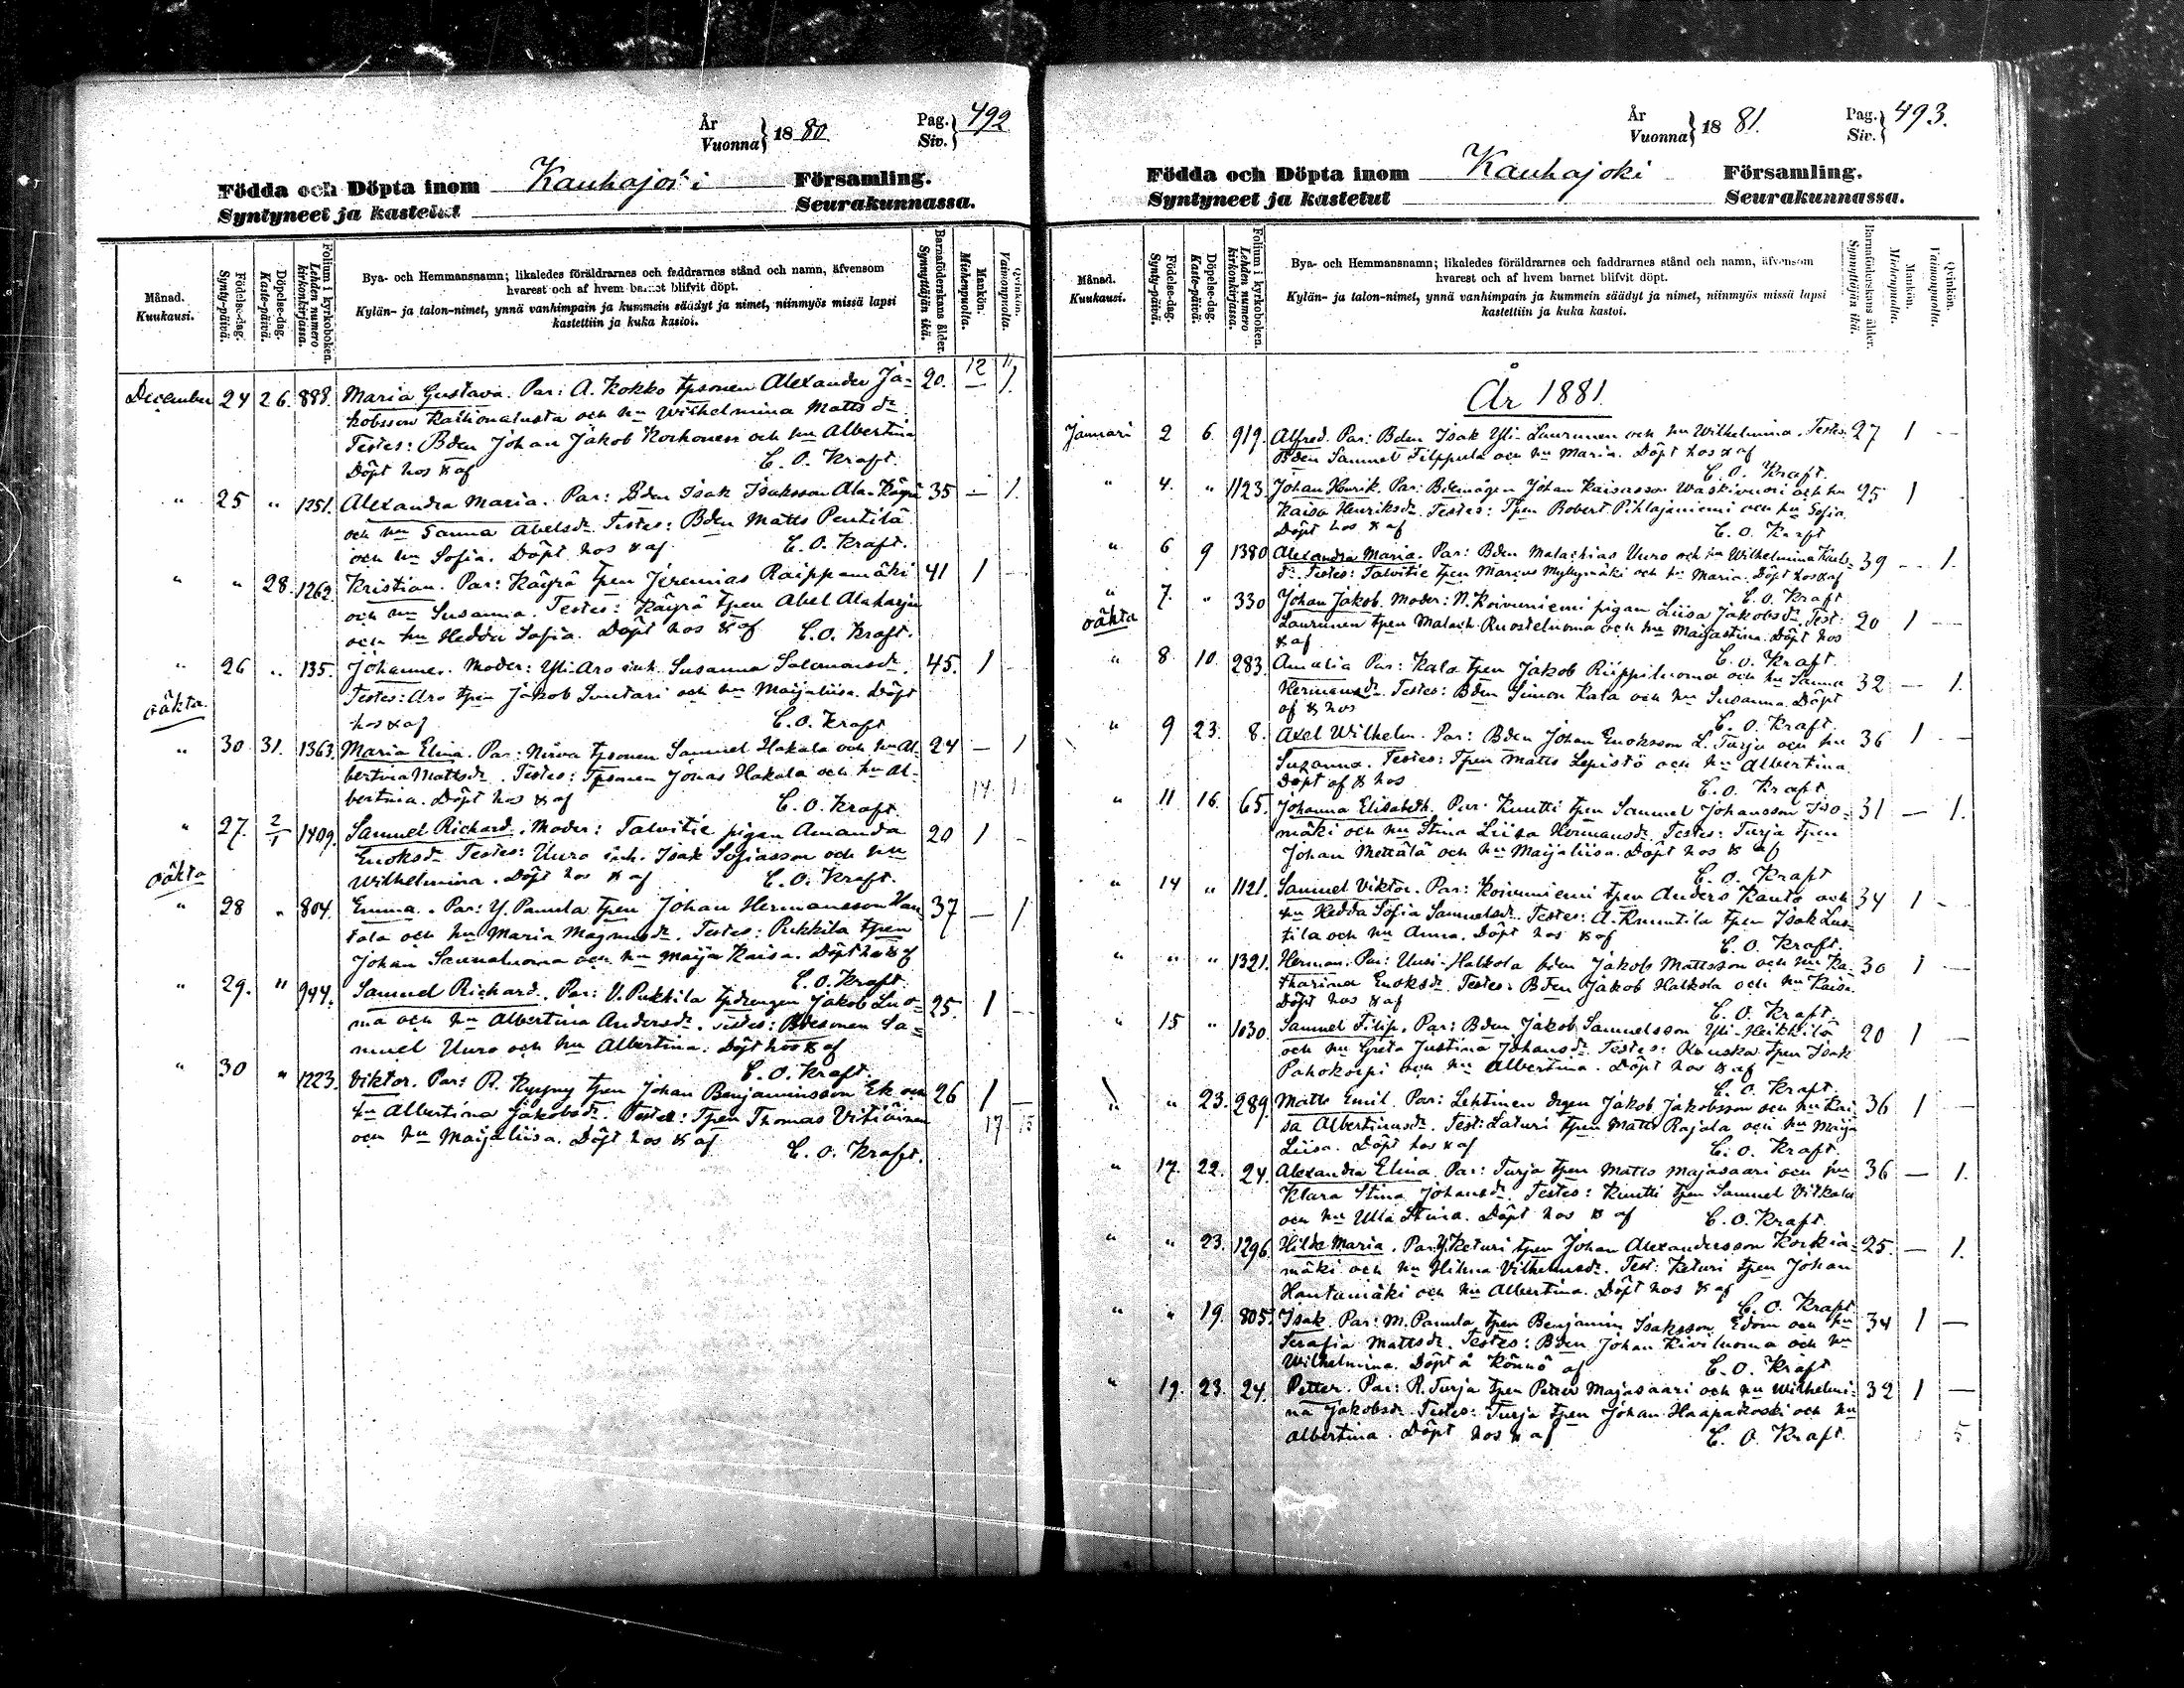 År
Vuonna } 1880.
Pag.
Siv. } 492
Födda och Döpta inom Kauhajoki Församling.
Syntyneet ja kastetut Seurakunnassa.
Månad.
Kuukausi.
Födelse-dag.
Synty-päivä.
Döpelse-dag.
Kaste-päivä.
Folium i kyrkoboken.
Lehden numero kirkonkirjassa.
Bya- och Hemmansnamn; likaledes föräldrarnes och faddrarnes stånd och namn, äfvensom
hvarest och af hvem barnet blifvit döpt.
Kylän- ja talon-nimet, ynnä vanhimpain ja kummein säädyt ja nimet, niinmyös missä lapsi
kastettiin ja kuka kastoi.
Barnaföderskans ålder.
Synnyttäjän ikä.
Mankön.
Miehenpuolta.
Qvinkön.
Vaimonpuolta.
12 11
December 24 26. 888. Maria Gustava. Par: A. Kokko tpsonen Alexander Ja- 20. — 1.
kobsson och hu Wilhelmina Matts dr.
Testes: Bden Johan Jakob Korhonen och hu Albertina
Döpt hos & af C. O. Kraft.
" 25 " 1251. Alexandra Maria. Par: Bden Isak Isaksson Ala-Käyrä 35 — 1.
och hu Sanna Abelsdr. Testes: Bden Matts Pentilä
och hu Sofia. Döpt hos & af C. O. Kraft.
" " 28. 1262. Kristian. Par: Käyrä tpen Jeremias Raippamäki 41 1 —
och hu Susanna. Testes: Käyrä tpen Abel Alaharju
och hu Hedda Sofia. Döpt hos & af C. O. Kraft.
" 26 " 135. Johannes. Moder: Yli-Aro inh. Susanna Salomonsdr 45. 1 —
oäkta. Testes: Aro tpen Jakob Luntari och hu Maijaliisa. Döpt
hos & af C. O. Kraft
" 30 31. 1363. Maria Elina. Par: Nirva tpsonen Samuel Hakala och hu Al- 24 — 1
bertina Mattsdr. Testes: Tpsonen Jonas Hakala och hu Al-
bertina. Döpt hos & af C. O. Kraft.
14
" 27. 2/1 1409. Samuel Richard. Moder: Talvitie pigan Amanda 20 1 —
Enoksdr. Testes: Uuro inh. Isak Sofiasson och hu
oäkta Wilhelmina. Döpt hos & af C. O. Kraft.
" 28 " 804. Emma. Par: Y. Panula tpen Johan Hermansson Han- 37 — 1
tala och hu Maria Magnusdr. Testes: Pukkila tpen
Johan Sannaluoma och hu Maija Kaisa. Döpt hos & af
C. O. Kraft.
" 29. " 944. Samuel Richard. Par: V. Pukkila tpdrengen Jakob Luo- 25. 1 —
ma och hu Albertina Andersdr. Testes: Bdesonen Sa-
muel Uuro och hu Albertina. Döpt hos & af
C. O. Kraft.
" 30 " 1223. Viktor. Par: R. Kyyny tpen Johan Benjaminsson Ek och 26 1 —
hu Albertina Jakobsdr. Testes: Tpen Thomas Vitiäinen
och hu Maijaliisa. Döpt hos & af 17 15
C. O. Kraft.
År
Vuonna } 1881.
Pag.
Siv. } 493.
Födda och Döpta inom Kauhajoki Församling.
Syntyneet ja kastetut Seurakunnassa.
Månad.
Kuukausi.
Födelse-dag.
Synty-päivä.
Döpelse-dag.
Kaste-päivä.
Folium i kyrkoboken.
Lehden numero kirkonkirjassa.
Bya- och Hemmansnamn; likaledes föräldrarnes och faddrarnes stånd och namn, äfvensom
hvarest och af hvem barnet blifvit döpt.
Kylän- ja talon-nimet, ynnä vanhimpain ja kummein säädyt ja nimet, niinmyös missä lapsi
kastettiin ja kuka kastoi.
Barnaföderskans ålder.
Synnyttäjän ikä.
Mankön.
Miehenpuolta.
Qvinkön.
Vaimonpuolta.
År 1881.
Januari 2 6. 919. Alfred. Par: Bden Isak Yli-Laurunen och hu Wilhelmina. Testes: 27 1 —
Bden Samuel Filppula och hu Maria. Döpt hos & af
C. O. Kraft.
" 4. " 1123. Johan Henrik. Par: Bdemågen Johan Kaisasson Waskivuori och hu 25 1
Kaisa Henriksdr. Testes: Tpen Robert Pihlajaniemi och hu Sofia.
Döpt hos & af C. O. Kraft
" 6 9 1380 Alexandra Maria. Par: Bden Malachias Uuro och hu Wilhelmina Karls- 39 — 1.
dr. Testes: Talvitie tpen Marcus Myllymäki och hu Maria. Döpt hos & af
C. O. Kraft
" 7. " 330 Johan Jakob. Moder: N. Koivuniemi pigan Liisa Jakobsdr. Test: 20 1 —
oäkta Laurunen tpen Malach. Ruosteluoma och hu Maijastina. Döpt hos
& af C. O. Kraft.
" 8. 10. 283. Amalia Par: Kala tpen Jakob Riippiluoma och hu Sanna 32 — 1.
Hermansdr. Testes: Bden Simon Kala och hu Susanna. Döpt
af & hos C. O. Kraft.
" 9 23. 8. Axel Wilhelm. Par: Bden Johan Enoksson L. Turja och hu 36 1 —
Susanna. Testes: Tpen Matts Lepistö och hu Albertina.
Döpt af & hos C. O. Kraft.
" 11. 16. 65. Johanna Elisabeth. Par: Knutti tpen Samuel Johansson Iso- 31 — 1.
mäki och hu Stina Liisa Hermansdr. Testes: Turja tpen
Johan Mettälä och hu Maijaliisa. Döpt hos & af
C. O. Kraft
" 14 " 1121. Samuel Viktor. Par: Koivuniemi tpen Anders Kanto och 34 1 —
hu Hedda Sofia Samuelsdr. Testes: A. Knuutila tpen Isak Lus-
tila och hu Anna. Döpt hos & af C. O. Kraft.
" " " 1321. Herman. Par: Uusi-Halkola bden Jakob Mattsson och hu Ka- 30 1 —
tharina Enoksdr. Testes: Bden Jakob Halkola och hu Kaisa.
Döpt hos & af C. O. Kraft.
" 15 " 1030. Samuel Filip. Par: Bden Jakob Samuelsson Yli-Heikkilä 20 1 —
och hu Greta Justina Johansdr. Testes: Knuska tpen Isak
Pahokorpi och hu Albertina. Döpt hos & af
C. O. Kraft.
" " 23. 289. Matts Emil. Par: Lehtinen drgen Jakob Jakobsson och hu Kai- 36 1 —
sa Albertinasdr. Test: Laturi tpen Matts Rajala och hu Maija
Liisa. Döpt hos & af C. O. Kraft.
" 17. 22. 24. Alexandra Elina. Par: Turja tpen Matts Majasaari och hu 36 — 1.
Klara Stina Johansdr. Testes: Knutti tpen Samuel Vilkala
och hu Ulla Stina. Döpt hos & af C. O. Kraft.
" " 23. 1296. Hilda Maria. Par: Y. Keturi tpen Johan Alexandersson Korkia- 25. — 1.
mäki och hu Hilma Vilhelmsdr. Test: Keturi tpen Johan
Hautamäki och hu Albertina. Döpt hos & af
C. O. Kraft
" " 19. 805. Isak. Par: M. Panula tpen Benjamin Isaksson Edom och hu 34 1 —
Serafia Mattsdr. Testes: Bden Johan Kiviluoma och hu
Wilhelmina. Döpt å Könnö af C. O. Kraft
" 19. 23. 24. Petter. Par: R. Turja tpen Petter Majasaari och hu Wilhelmi- 32 1 —
na Jakobsdr. Testes: Turja tpen Johan Haapakoski och hu
Albertina. Döpt hos & af C. O. Kraft. 5